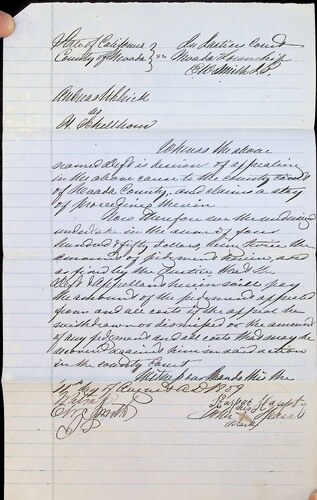 State of California } ss In Justices Court
County of Nevada } Nevada Township
E W Smith J.P.
Andreas
vs
H. Schellhorn
Whereas the above
named Deft is desirous of appealing
in the above cause to the County Court
of Nevada County, and claims a stay
of proceedings therein
Now Therefore we the undersigned
undertake in the sum of four
hundred & fifty dollars, being twice the
amount of judgment & costs,
as fixed by the Justice that the
Deft & appellant herein will pay
the amount of the judgment appealed
from and all costs if the appeal be
withdrawn or dismissed or the amount
of any judgment and all costs that may be
recovered against him in said action
in the County Court
Witness our hands this the
15th day of A.D. 1859
Kaspar Haupt
E W Smith John his
J P mark